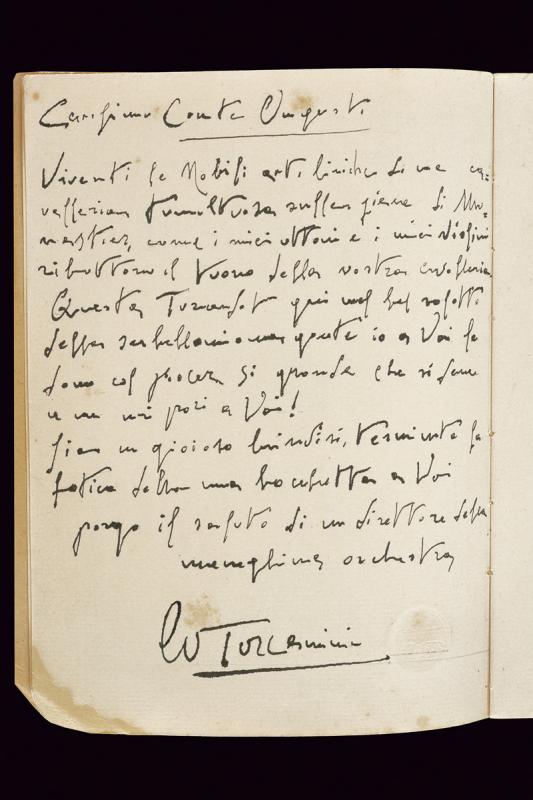 Carissimo Conte Augusto
Viventi le Nobili arti liriche di ca=
valleria tumultuosa sulla piana di Mo=
nastier, come i miei ottoni e i miei violini
ributtano il tuono della vostra
Questa Turandot qui nel bel salotto
della io a Voi la
dono col piacer sì grande che si deve
a un mi pari a Voi!
Sia un gioioso brindisi, terminata la
fatica della mia bacchetta a Voi
porgo il saluto di un direttore della
meneghina orchestra
Toscanini